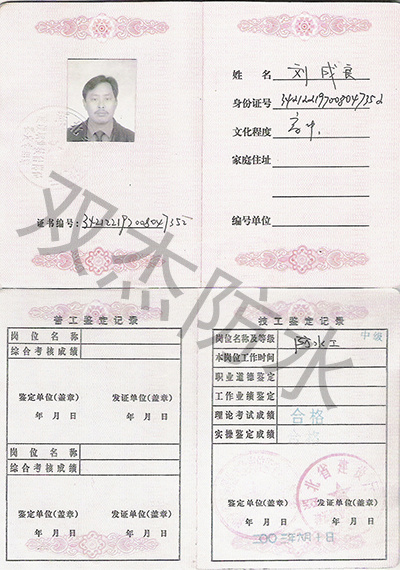 姓 名 刘成良
身份证号 342122197008047352
文化程度 高中
家庭住址
编号单位
证书编号: 342122197008047352
双杰防水
普工鉴定记录
岗位名称
综合考核成绩
鉴定单位(盖章) 发证单位(盖章)
年 月 日 年 月 日
岗位名称
综合考核成绩
鉴定单位(盖章) 发证单位(盖章)
年 月 日 年 月 日
技工鉴定记录
岗位名称及等级 防水工 中级
本岗位工作时间
职业道德鉴定
工作业绩鉴定
理论考试成绩 合格
实操鉴定成绩 合格
北省建设
鉴定单位(盖章) 发证单位(盖章)
年 月 日 年 月 日
二〇〇三年六月一日